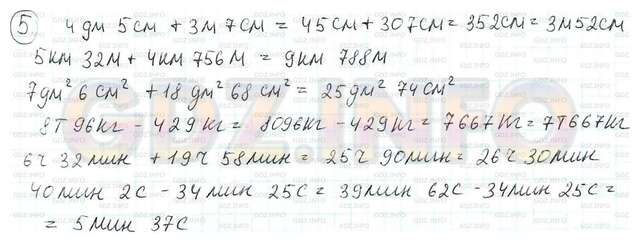 5 4 дм 5см + 3м 7см = 45см + 307см = 352см = 3м52см
5км 32м + 4км 756м = 9км 788м
7дм² 6см² + 18 дм² 68 см² = 25дм² 74см²
8т 96кг - 429кг = 8096кг - 429кг = 7667кг = 7т667кг
6ч 32мин + 19ч 58мин = 25ч 90мин = 26ч 30мин
40мин 2с - 34мин 25с = 39мин 62с - 34мин 25с =
= 5мин 37с
GDZ.INFO